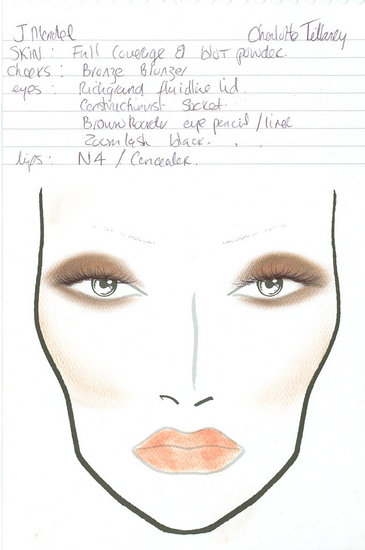 J Mendel Charlotte Tilbury
SKIN: Full Coverage & blot powder.
Cheeks: Bronze Bronzer
eyes: Richground fluidline lid.
Constructivist socket.
Brown Border eye pencil/liner
Zoomlash black.
Lips: N4 / Concealer.